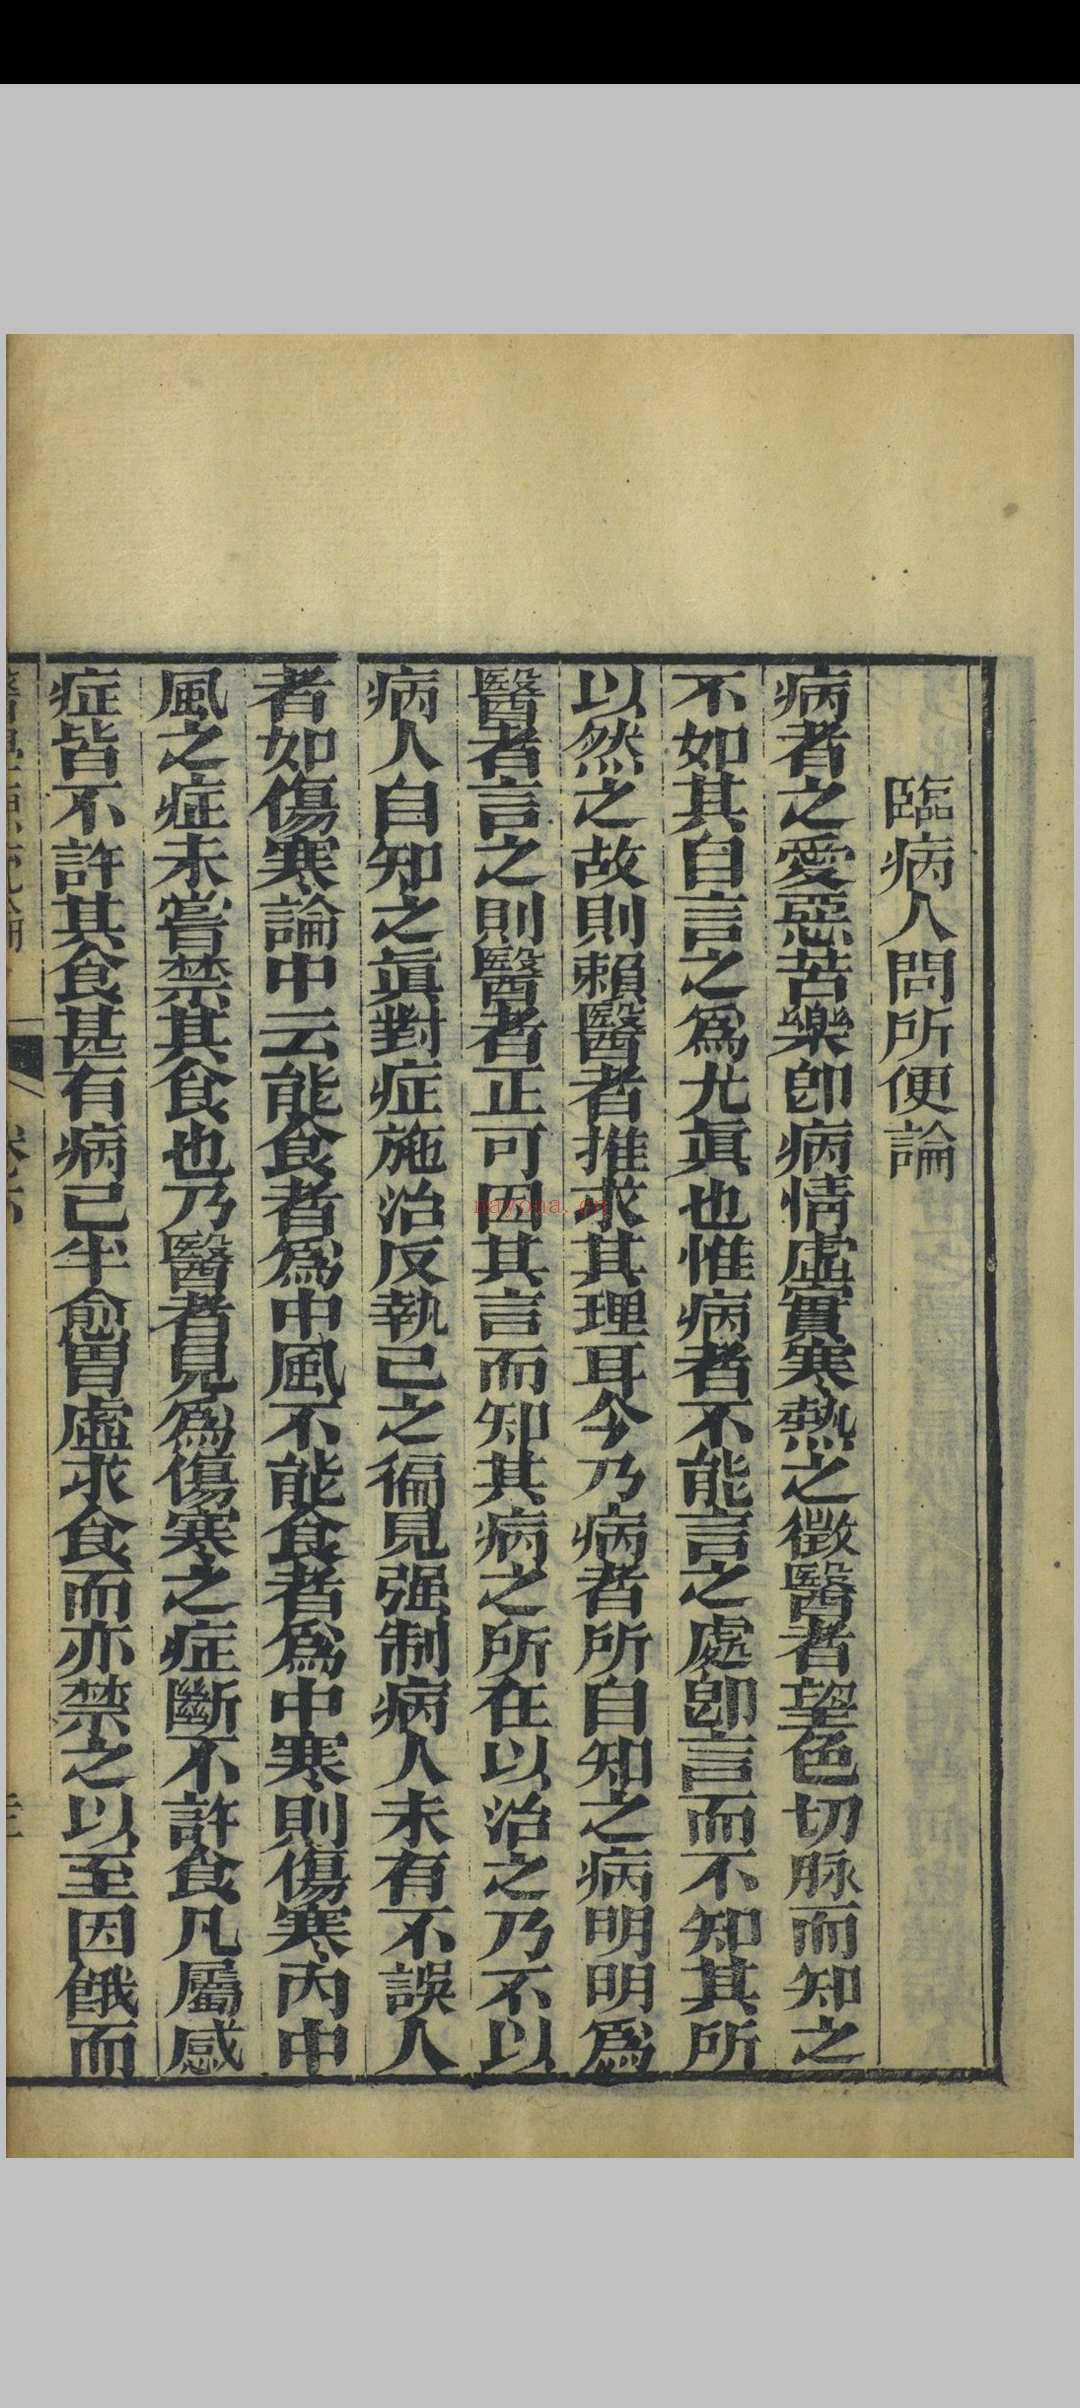 臨病人問所便論
病者之愛惡苦樂卽病情虛實寒熱之徵醫者望色切脉而知之
不如其自言之爲尤眞也惟病者不能言之處卽言而不知其所
以然之故則賴醫者推求其理耳今乃病者所自知之病明明爲
醫者言之則醫者正可因其言而知其病之所在以治之乃不以
病人自知之眞對症施治反執己之徧見强制病人未有不誤人
者如傷寒論中云能食者爲中風不能食者爲中寒則傷寒內中
風之症未嘗禁其食也乃醫者見爲傷寒之症斷不許食凡屬感
症皆不許其食甚有病已半愈胃虛求食而亦禁之以至因餓而
nayona.cn